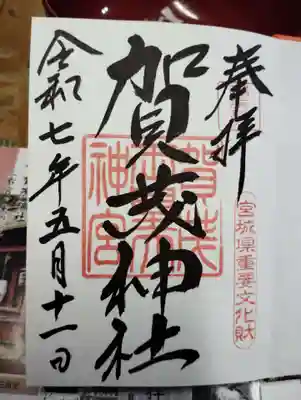 奉拝
宮城県重要文化財
賀茂神社
賀茂
神宮
令和七年五月十一日